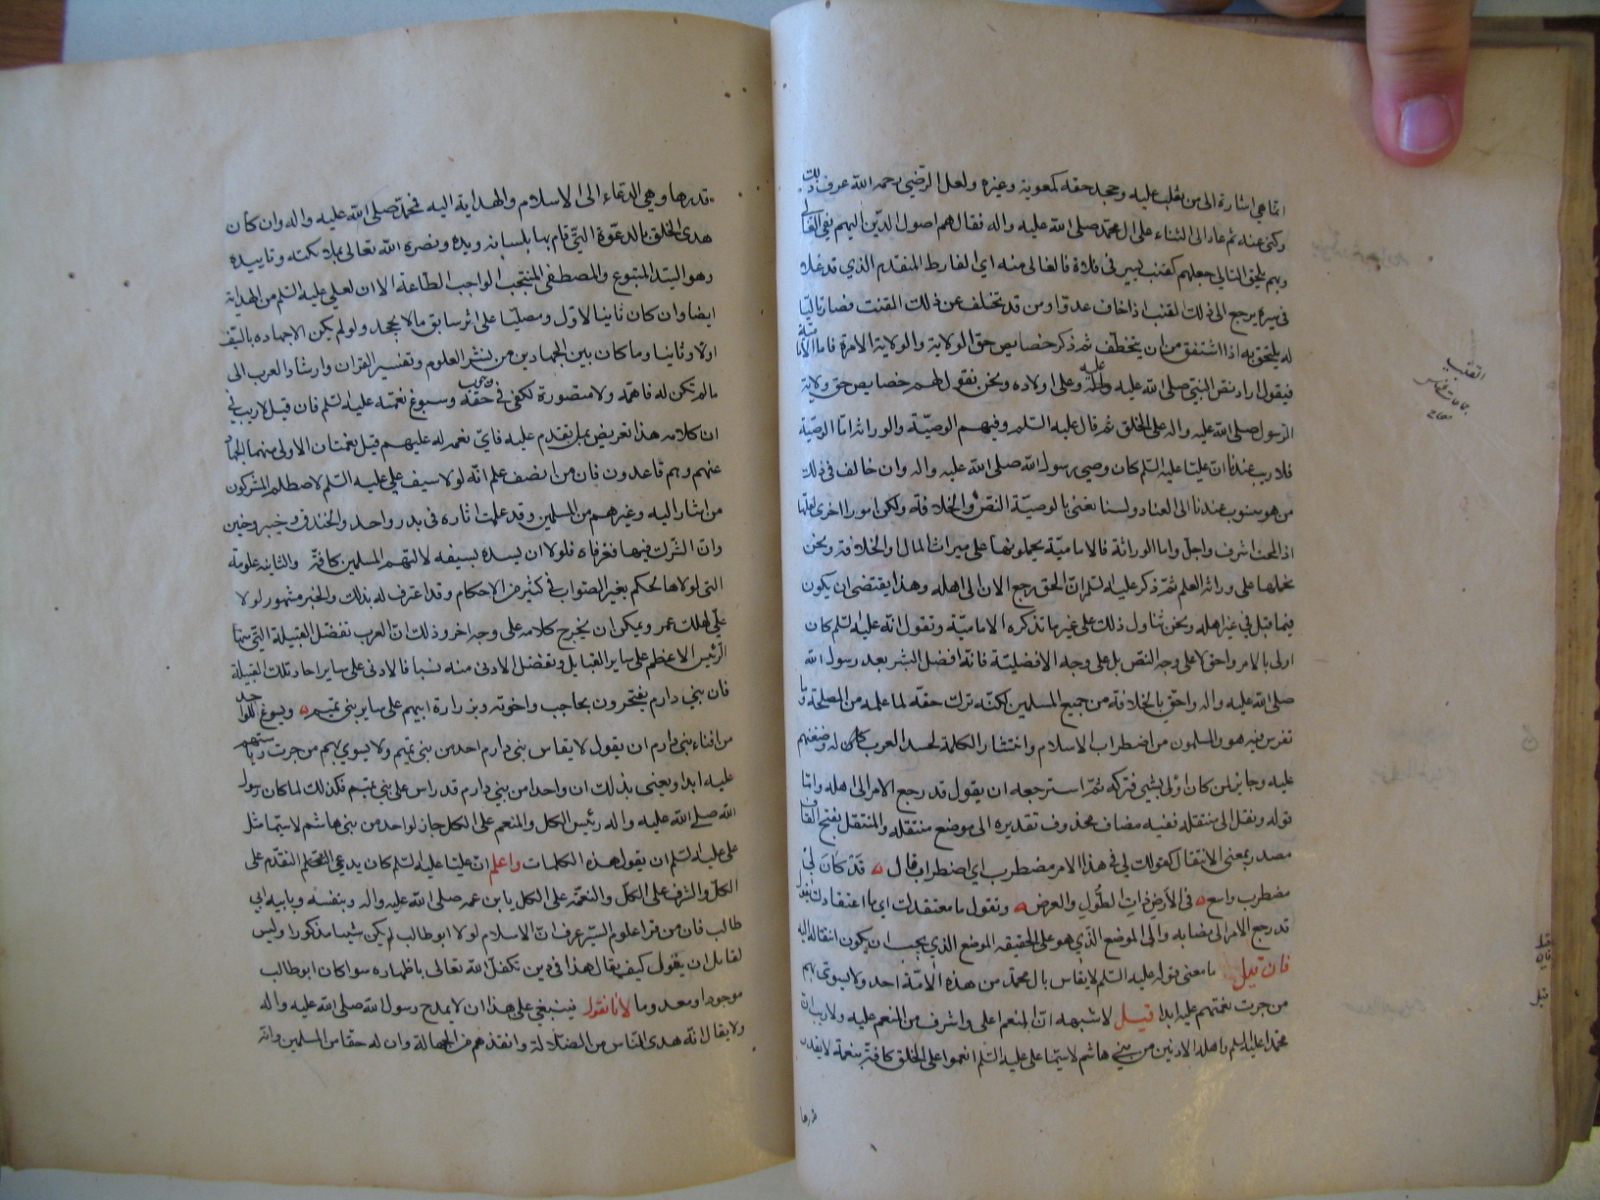 انما هي اشارة الى من تغلب عليه وجحد حقه كمعوية وغيره ولعل الرضي رحمه الله عرف ذلك
وكنى عنه ثم عاد الى الثناء على ال محمد صلى الله عليه واله فقال هم اصول الدين اليهم يفي الغالي
وبهم يلحق التالي جعلهم كمقنب يسير في فلاة فالغالي منه اي الفارط المتقدم الذي قد غلا
في سيره يرجع الى ذلك المقنب اذا خاف عدوا ومن قد تخلف عن ذلك المقنب فصار تاليا
له يلتحق به اذا اشفق من ان يتخطف ثم ذكر خصايص حق الولاية والولاية الامرة فاما الامامية
فيقول اراد نص النبي صلى الله عليه واله عليه وعلى اولاده ونحن نقول لهم خصايص حق ولاية
الرسول صلى الله عليه واله على الخلق ثم قال عليه السلم وفيهم الوصية والوراثة اما الوصية
فلا ريب عندنا ان عليا عليه السلم كان وصي رسول الله صلى الله عليه واله وان خالف في ذلك
من هو منسوب عندنا الى العناد ولسنا نعني بالوصية النص والخلافة ولكن امورا اخرى لعلها
اذا لمحت اشرف واجل واما الوراثة فالامامية يحملونها على ميراث المال والخلافة ونحن
نحملها على وراثة العلم ثم ذكر عليه السلم ان الحق رجع الان الى اهله وهذا يقتضي ان يكون
فيما قبل في غير اهله ونحن نتاول ذلك على غير ما تذكره الامامية ونقول انه عليه السلم كان
اولى بالامر واحق لا على وجه النص بل على وجه الافضلية فانه افضل البشر بعد رسول الله
صلى الله عليه واله واحق بالخلافة من جميع المسلمين لكنه ترك حقه لما علمه من المصلحة وما
تفرس فيه هو والمسلمون من اضطراب الاسلام وانتشار الكلمة لحسد العرب له وضغنهم
عليه وجايز لمن كان اولى بشيء فتركه ثم استرجعه ان يقول قد رجع الامر الى اهله واما
قوله ونقل الى منتقله ففيه مضاف محذوف تقديره الى موضع منتقله والمنتقل بفتح القاف
مصدر بمعنى الانتقال كقولك لي في هذا الامر مضطرب اي اضطراب قال قد كان لي
مضطرب واسع في الارض ذات الطول والعرض وتقول ما معتقدك اي ما اعتقادك
قد رجع الامر الى نصابه والى الموضع الذي هو على الحقيقة الموضع الذي يجب ان يكون انتقاله اليه
فان قيل ما معنى قوله عليه السلم لا يقاس بال محمد من هذه الامة احد ولا يسوى بهم
من جرت نعمتهم عليه ابدا قيل لا شبهه ان المنعم اعلى واشرف من المنعم عليه ولا ريب ان
محمدا عليه السلم واهله الادنين من بني هاشم لا سيما علي عليه السلم انعموا على الخلق كافة بنعمة لا يقدر
قدرها
المقنب
قدرها وهي الدعاء الى الاسلام والهداية اليه فمحمد صلى الله عليه واله وان كان
هدى الخلق بالدعوة التي قام بها بلسانه ويده ونصره الله تعالى بملائكته وتاييده
وهو السيد المتبوع والمصطفى المنتجب الواجب الطاعة الا ان لعلي عليه السلم من الهداية
ايضا وان كان ثانيا لاول ومصليا على اثر سابق ما لا يجحد ولو لم يكن الا جهاده بالسيف
اولا وثانيا وما كان بين الجهادين من نشر العلوم وتفسير القران وارشاد العرب الى
ما لم تكن له فاهمة ولا متصورة لكفى في وجوب حقه وسبوغ نعمته عليه السلم فان قيل لا ريب في
ان كلامه هذا تعريض بمن تقدم عليه فاي نعمة له عليهم قيل نعمتان الاولى منهما الجهاد
عنهم وهم قاعدون فان من انصف علم انه لولا سيف علي عليه السلم لاصطلم المشركون
من اشار اليه وغيرهم من المسلمين وقد علمت اثاره في بدر واحد والخندق وخيبر وحنين
وان الشرك فيها فغر فاه فلولا ان يسده بسيفه لالتهم المسلمين كافة والثانية علومه
التي لولاها لحكم بغير الصواب في كثير من الاحكام وقد اعترف له بذلك والخبر مشهور لولا
علي لهلك عمر ويمكن ان يخرج كلامه على وجه اخر وذلك ان العرب تفضل القبيلة التي منها
الرئيس الاعظم على ساير القبايل وتفضل الادنى منه نسبا فالادنى على ساير احاد تلك القبيلة
فان بني دارم يفتخرون بحاجب واخوته وبزرارة ابيهم على ساير بني تميم ويسوغ للواحد
من ابناء بني دارم ان يقول لا يقاس ببني دارم احد من بني تميم ولا يسوي بهم من جرت رياستهم
عليه ابدا ويعني بذلك ان واحدا من بني دارم قد راس على بني تميم فكذلك لما كان رسول
الله صلى الله عليه واله رئيس الكل والمنعم على الكل جاز لواحد من بني هاشم لا سيما مثل
علي عليه السلم ان يقول هذه الكلمات واعلم ان عليا عليه السلم كان يدعي التقدم على
الكل والشرف على الكل والنعمة على الكل بابن عمه صلى الله عليه واله وبنفسه وبابيه ابي
طالب فان من قرا علوم السير عرف ان الاسلام لولا ابو طالب لم يكن شيئا مذكورا وليس
لقائل ان يقول كيف يقال هذا في دين تكفل الله تعالى باظهاره سوا كان ابو طالب
موجودا او معدوما لانا نقول فينبغي على هذا ان لا يمدح رسول الله صلى الله عليه واله
ولا يقال انه هدى الناس من الضلالة وانقذهم من الجهالة وان له حقا على المسلمين وانه